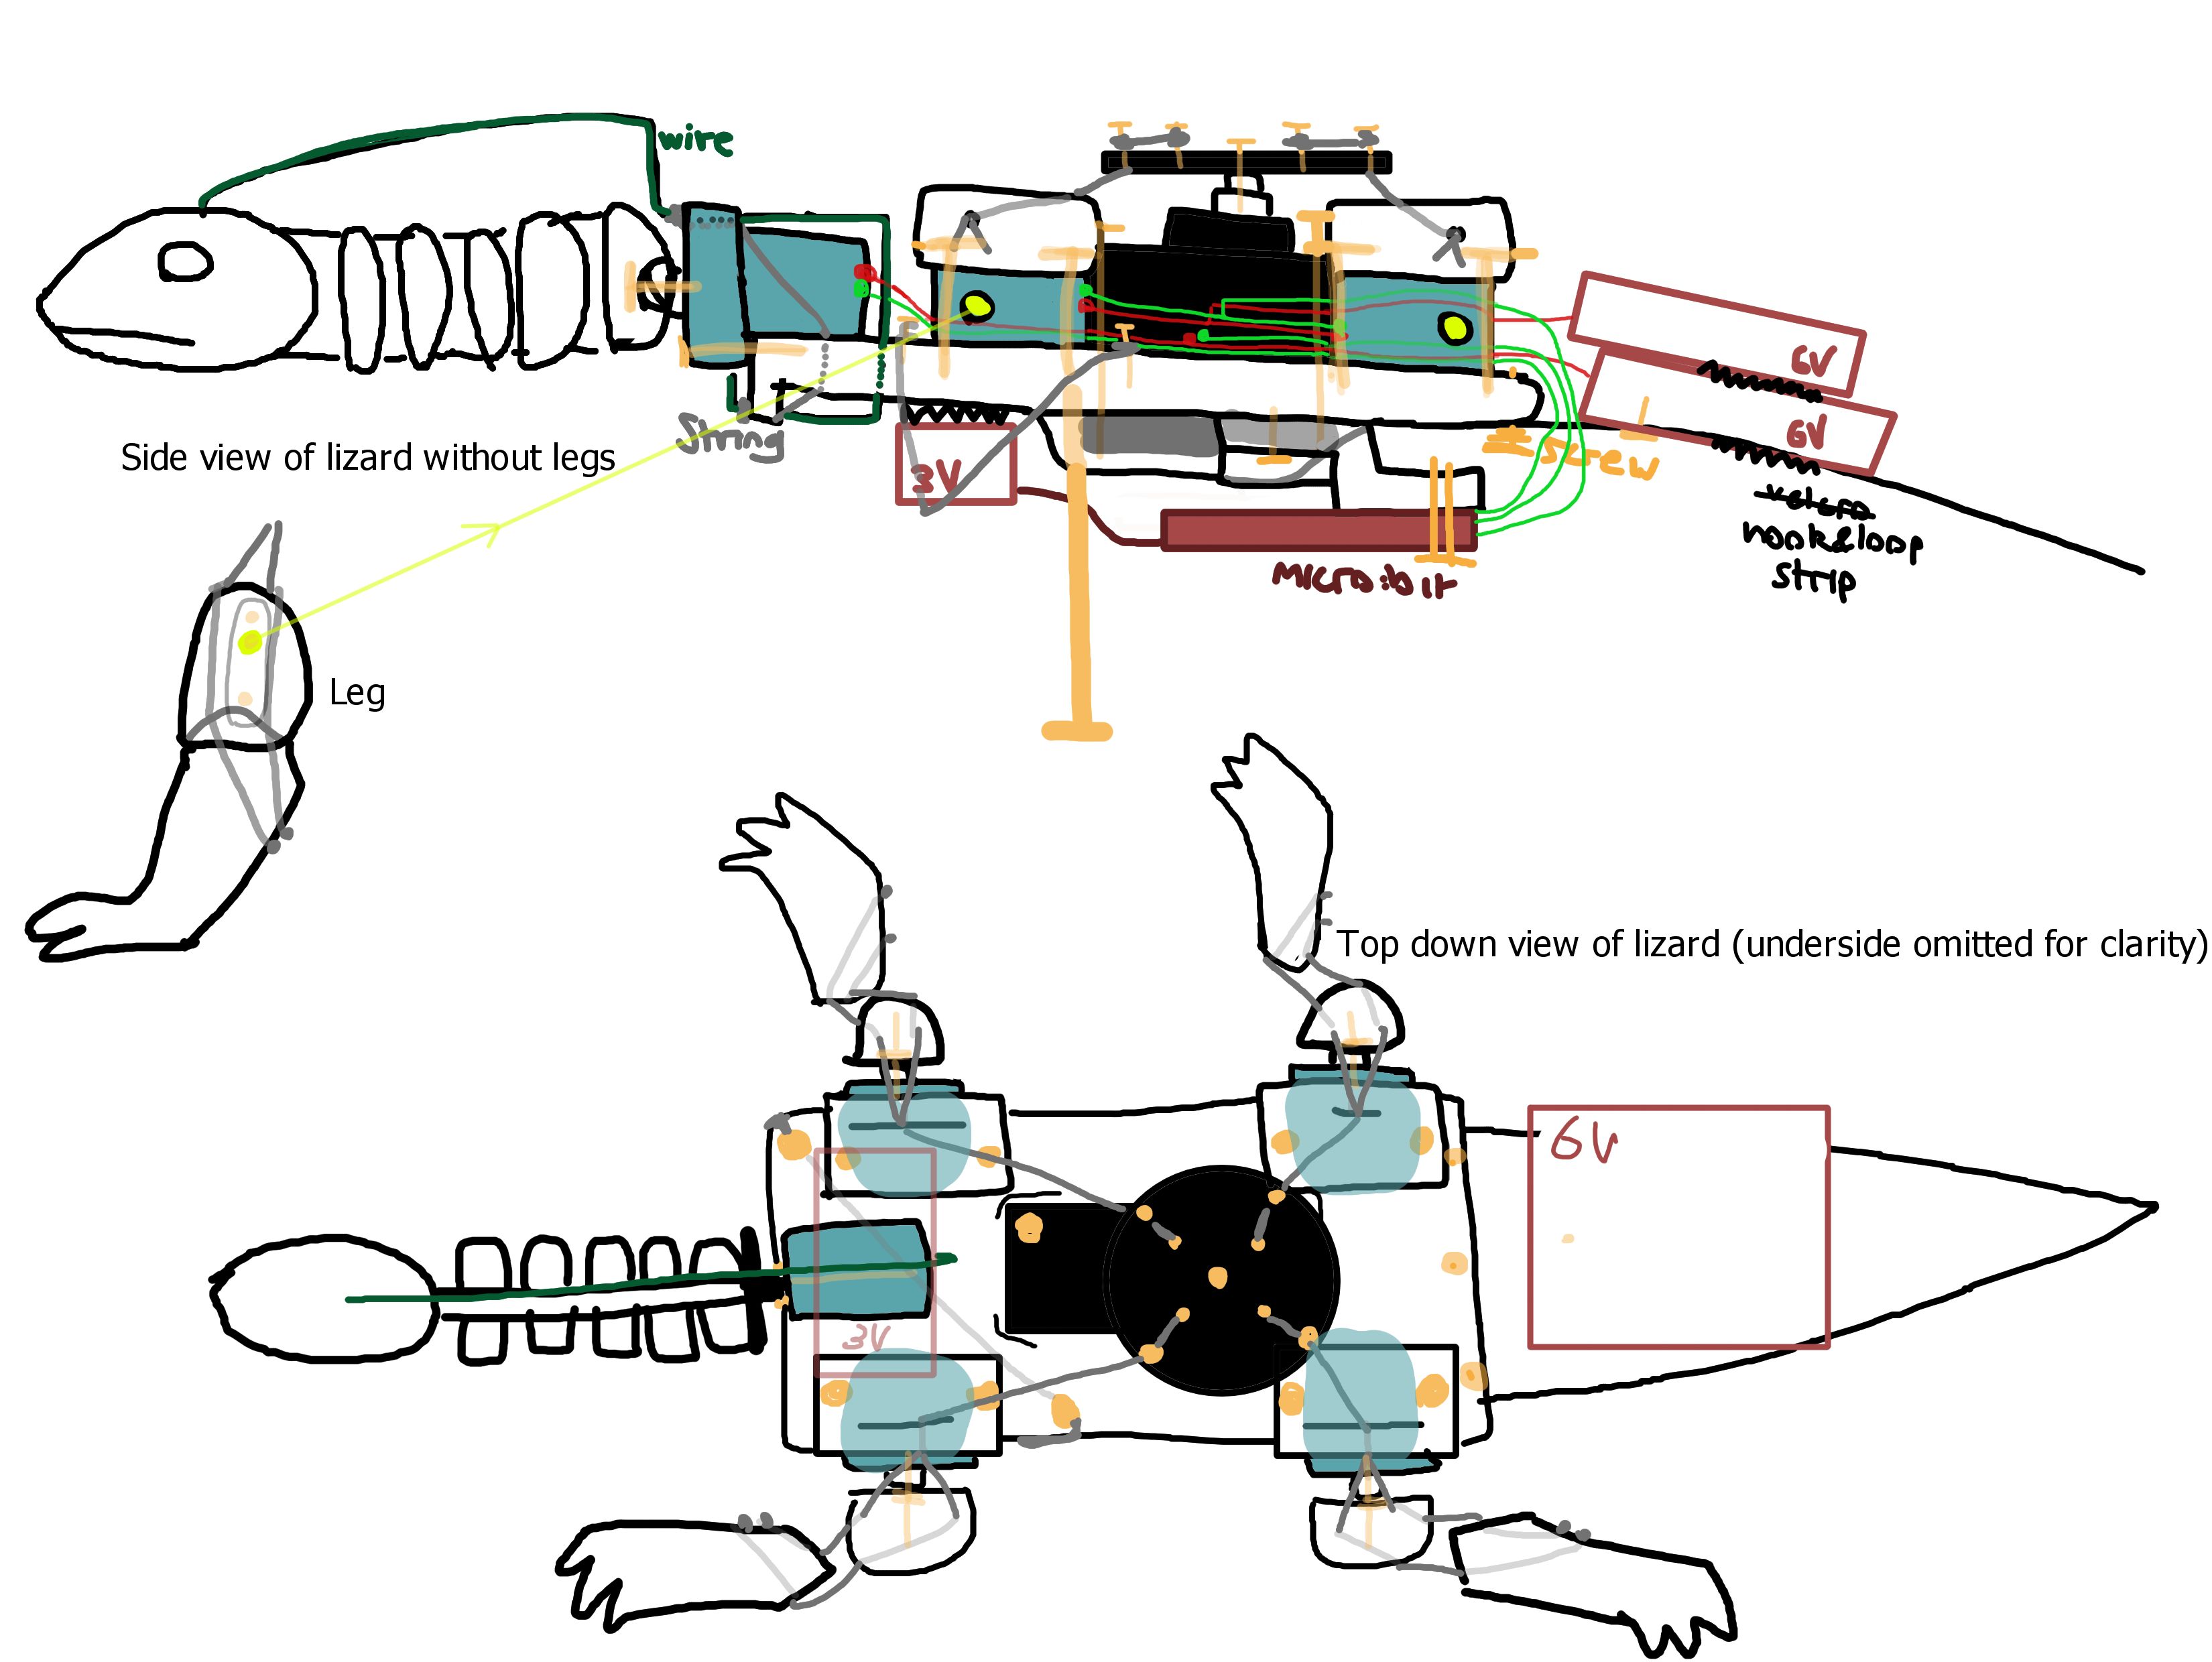 wire
6V
6V
String
Side view of lizard without legs
3V
screw
velcro
hook&loop
strip
micro:bit
Leg
Top down view of lizard (underside omitted for clarity)
6V
3V